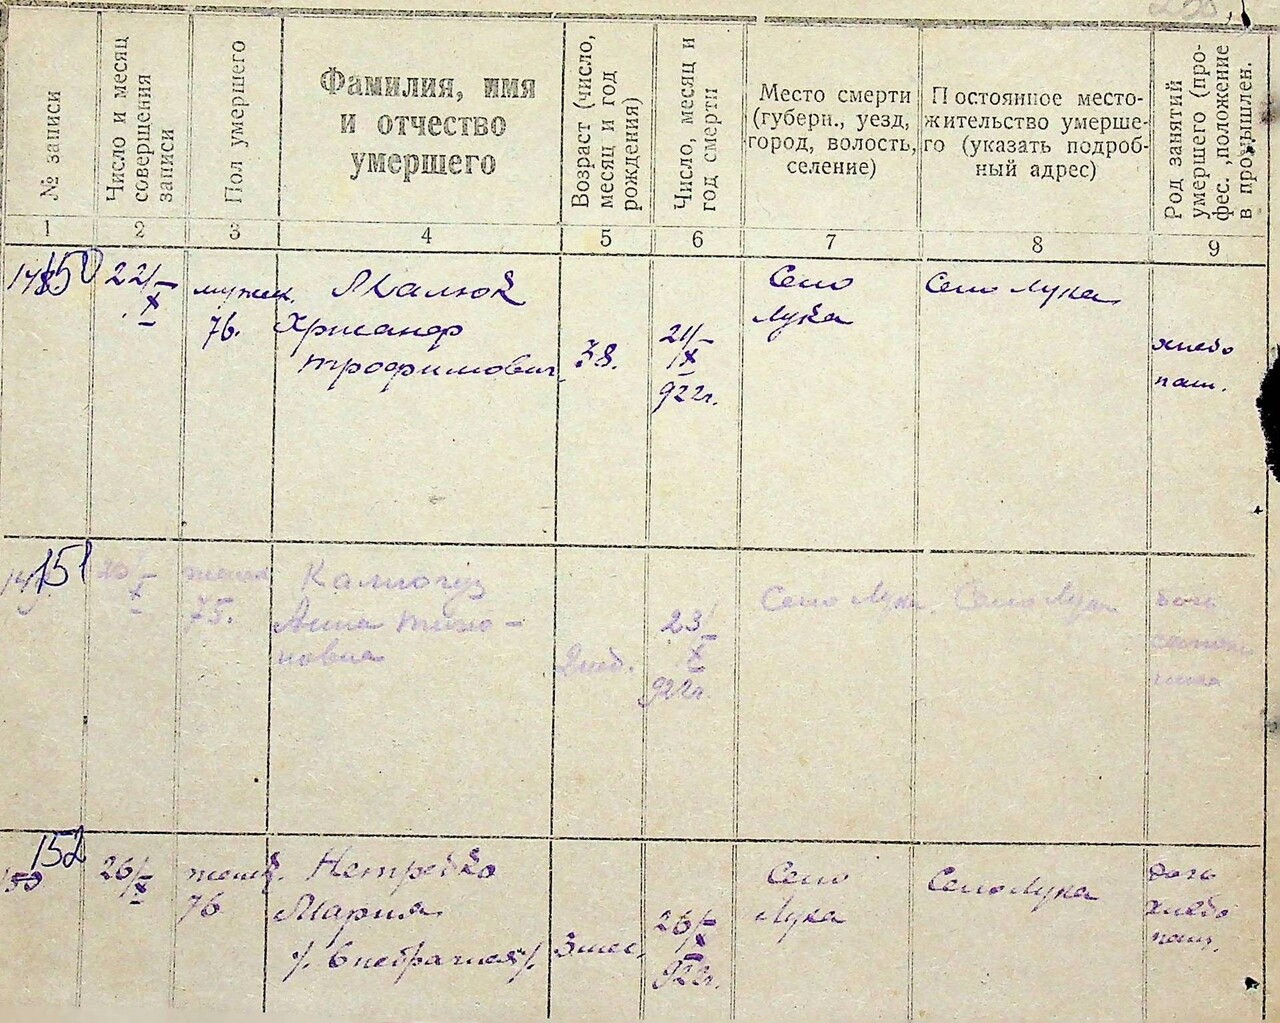 № записи
Число и месяц
совершения
записи
Пол умершего
Фамилия, имя
и отчество
умершего
Возраст (число,
месяц и год
рождения)
Число, месяц и
год смерти
Место смерти
(губерн., уезд,
город, волость,
селение)
Постоянное место-
жительство умерше-
го (указать подроб-
ный адрес)
Род занятий
умершего (про-
фес., положение
в промышлен.
1
2
3
4
5
6
7
8
9
150
22/
X
мужск.
76.
Хрисанф
Трофимович
38.
21/
X
922г.
Село
Лука
Село Лука
хлебо
паш.
151
X
женск
75.
Калиогуз
Анна Тихо-
новна
2 нед.
23/
X
922г.
Село Лука.
Село Лука
дочь
152
150
26/
X
женск.
76
Нетребко
Мария
/. внебрачная /.
3 мес.
26/
X
922г.
Село
Лука
Село Лука
дочь
хлебо
паш.